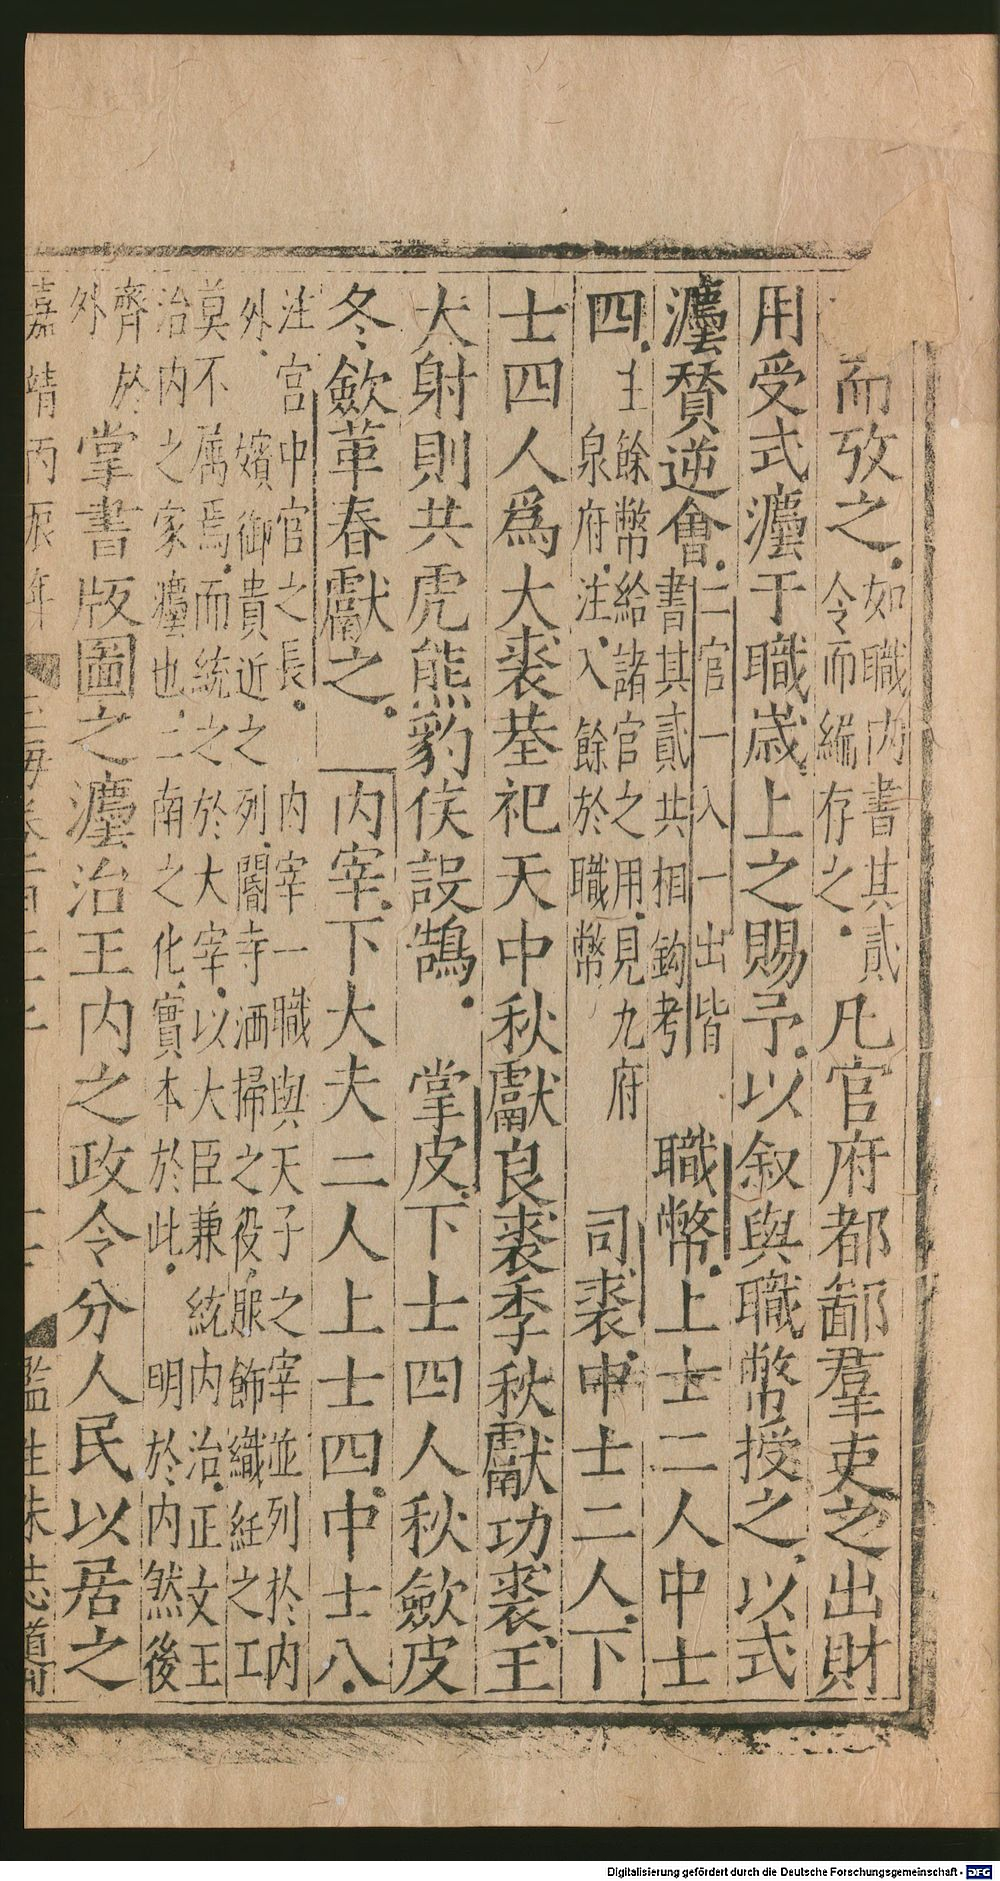 而攷之如職内書其貳令而編存之凡官府都鄙羣吏之出財
用受式灋于職歲上之賜予以叙與職幣授之以式
灋賛逆會二官一入一出皆書其貳共相鈎考職幣上士二人中士
四主餘幣給諸官之用見九府泉府注入餘於職幣司裘中士二人下
士四人爲大裘䒶祀天中秋獻良裘季秋獻功裘王
大射則共虎熊豹侯設鵠掌皮下士四人秋斂皮
冬斂革春獻之内宰下大夫二人上士四中士八
注宫中官之長内宰一職與天子之宰並列於内
外嬪御貴近之列閽寺洒掃之役服飾織紝之工
莫不属焉而統之於大宰以大臣兼統内治正文王
治内之家灋也二南之化實本於此明於内然後
齊於
外掌書版圖之灋治王内之政令分人民以居之
嘉靖丙辰年
監生朱志道刊
Digitalisierung gefördert durch die Deutsche Forschungsgemeinschaft - DFG